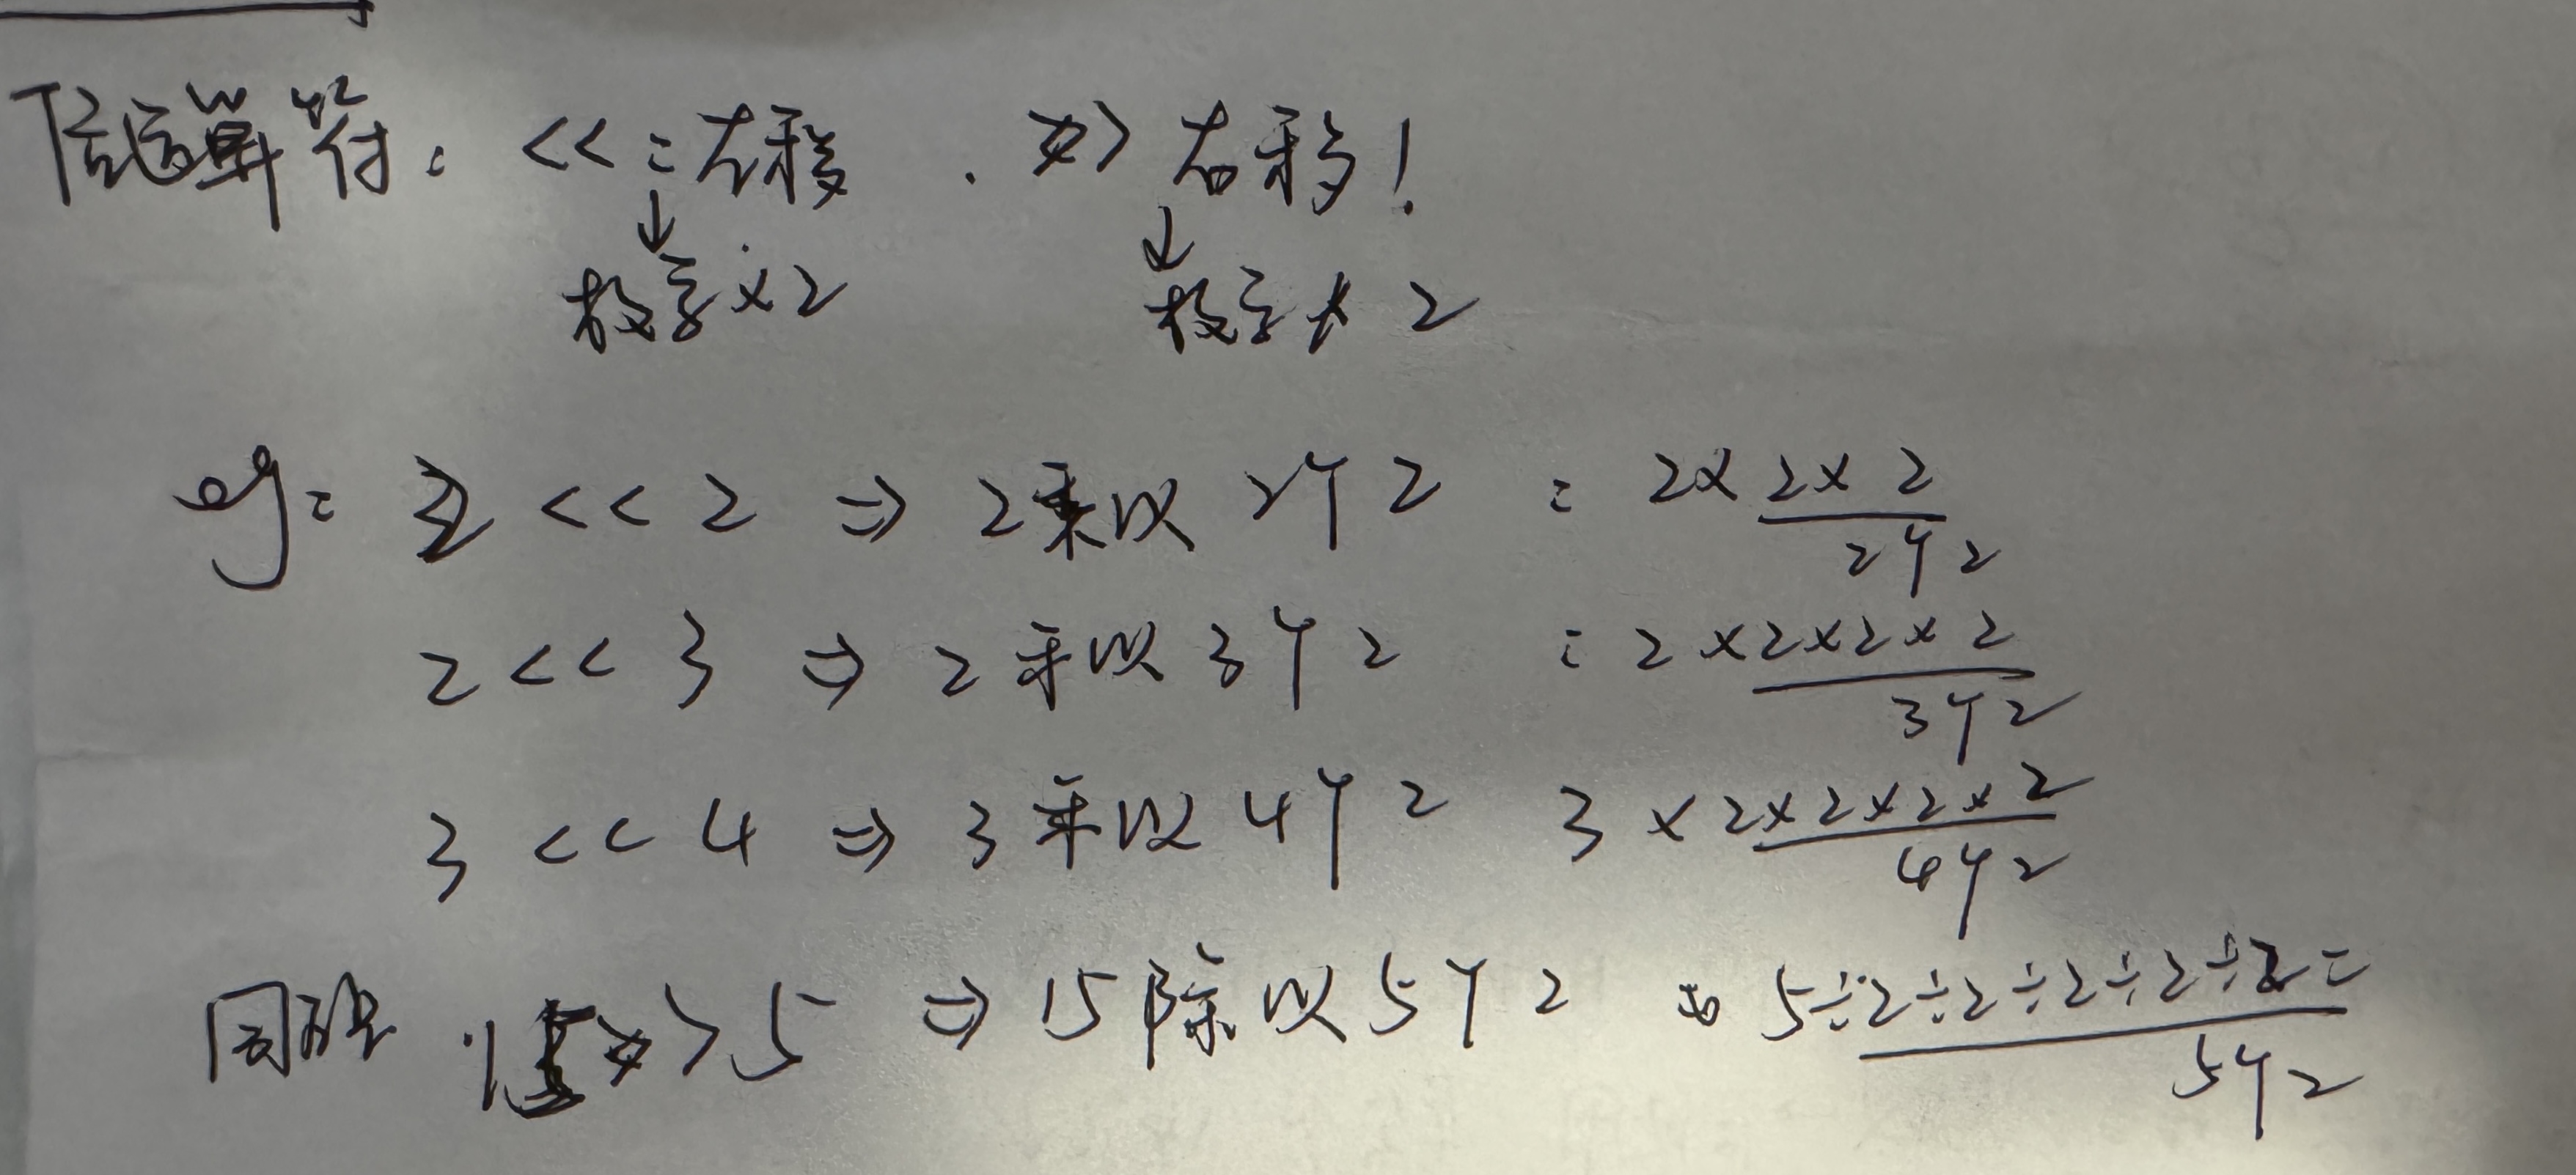 位运算符: <<:左移 . >> 右移!
↓ ↓
数字×2 数字÷2
eg: 2 << 2 ⇒ 2乘以2个2 : 2×2×2
2个2
2 << 3 ⇒ 2乘以3个2 : 2×2×2×2
3个2
3 << 4 ⇒ 3乘以4个2 3×2×2×2×2
4个2
同理 15>>5 ⇒ 15除以5个2 5÷2÷2÷2÷2÷2=
5个2